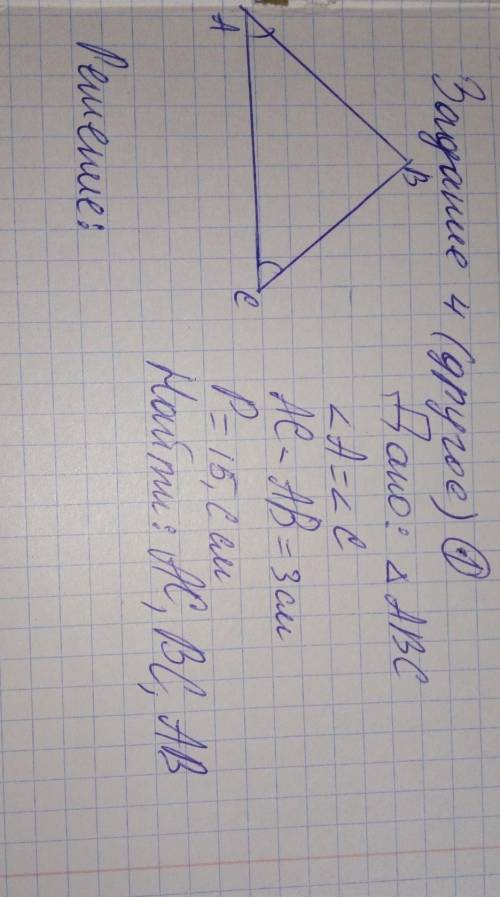 Задание 4 (другое) ①
Дано: △ABC
∠A=∠C
AC-AB=3см
P=15,6 см
Найти: AC, BC, AB
A
B
C
Решение: